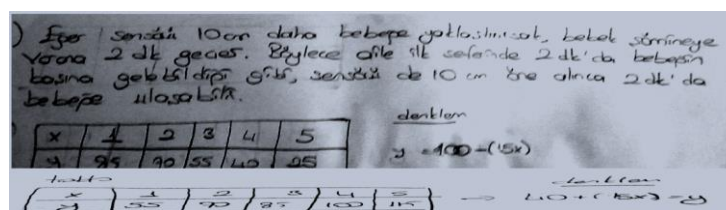 ) Eğer sensörü 10 cm daha bebeğe yaklaştırırsak, bebek şömineye
varana 2 dk geçer. Böylece aile ilk seferinde 2 dk'da bebeğin
başına gelebildiği gibi, sensörü de 10 cm öne alınca 2 dk'da
bebeğe ulaşabilir.
denklem
x 1 2 3 4 5
y 85 70 55 40 25
y = 100 - (15x)
tablo
denklem
x 1 2 3 4 5
y 55 70 85 100 115 → 40 + (15x) = y